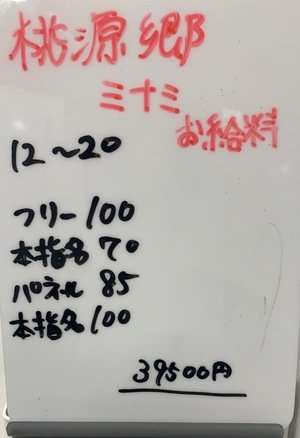 桃源郷
三十三
お給料
12〜20
フリー 100
本指名 70
パネル 85
本指名 100
39500円